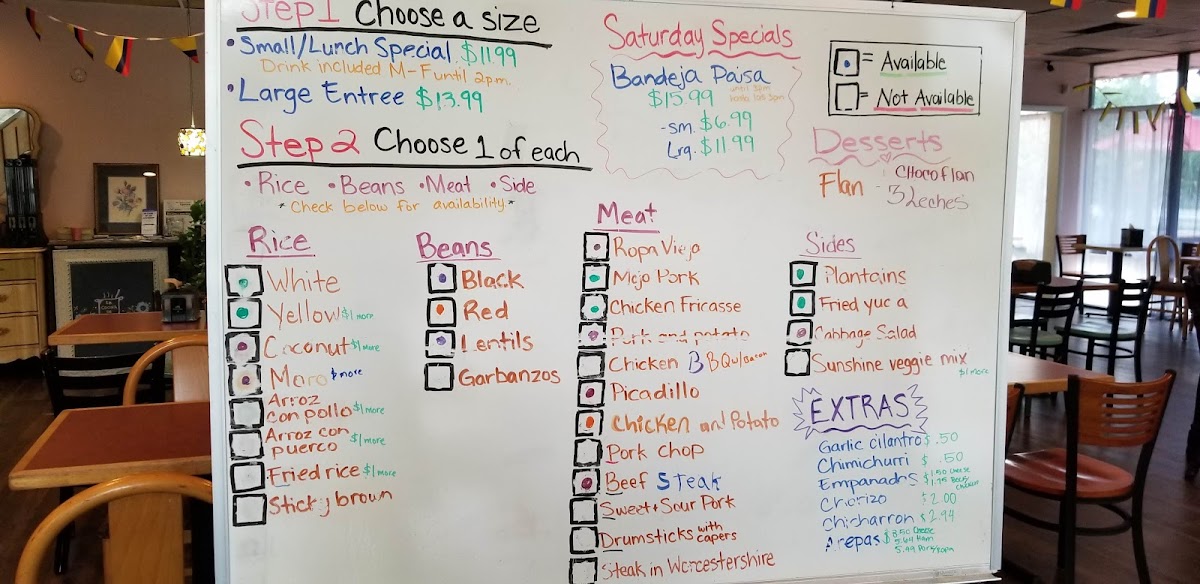 Step 1 Choose a size
• Small/Lunch Special $11.99
Drink included M-F until 2p.m.
• Large Entree $13.99
Step 2 Choose 1 of each
• Rice • Beans • Meat • Side
* Check below for availability *
Rice
White
Yellow $1 more
Coconut $1 more
Moro $ more
Arroz
con pollo $1 more
Arroz con
puerco $1 more
Fried rice $1 more
Sticky brown
Beans
Black
Red
Lentils
Garbanzos
Meat
Ropa Vieja
Mojo Pork
Chicken Fricasse
Pork and potato
Chicken BBQw/Bacon
Picadillo
Chicken and Potato
Pork chop
Beef Steak
Sweet + Sour Pork
Drumsticks with capers
Steak in Worcestershire
Saturday Specials
Bandeja Paisa
$15.99 until 3pm
hasta las 3pm
- sm. $6.99
Lrg. $11.99
= Available
= Not Available
Desserts
Flan - Choco flan
3 Leches
Sides
Plantains
Fried yuca
Cabbage Salad
Sunshine veggie mix
$1 more
EXTRAS
Garlic cilantro $ .50
Chimichurri $ .50
Empanadas $1.50 Cheese
$1.75 Beef/
Chicken
Chorizo $2.00
Chicharron $2.94
Arepas $3.50 Cheese
5.49 Ham